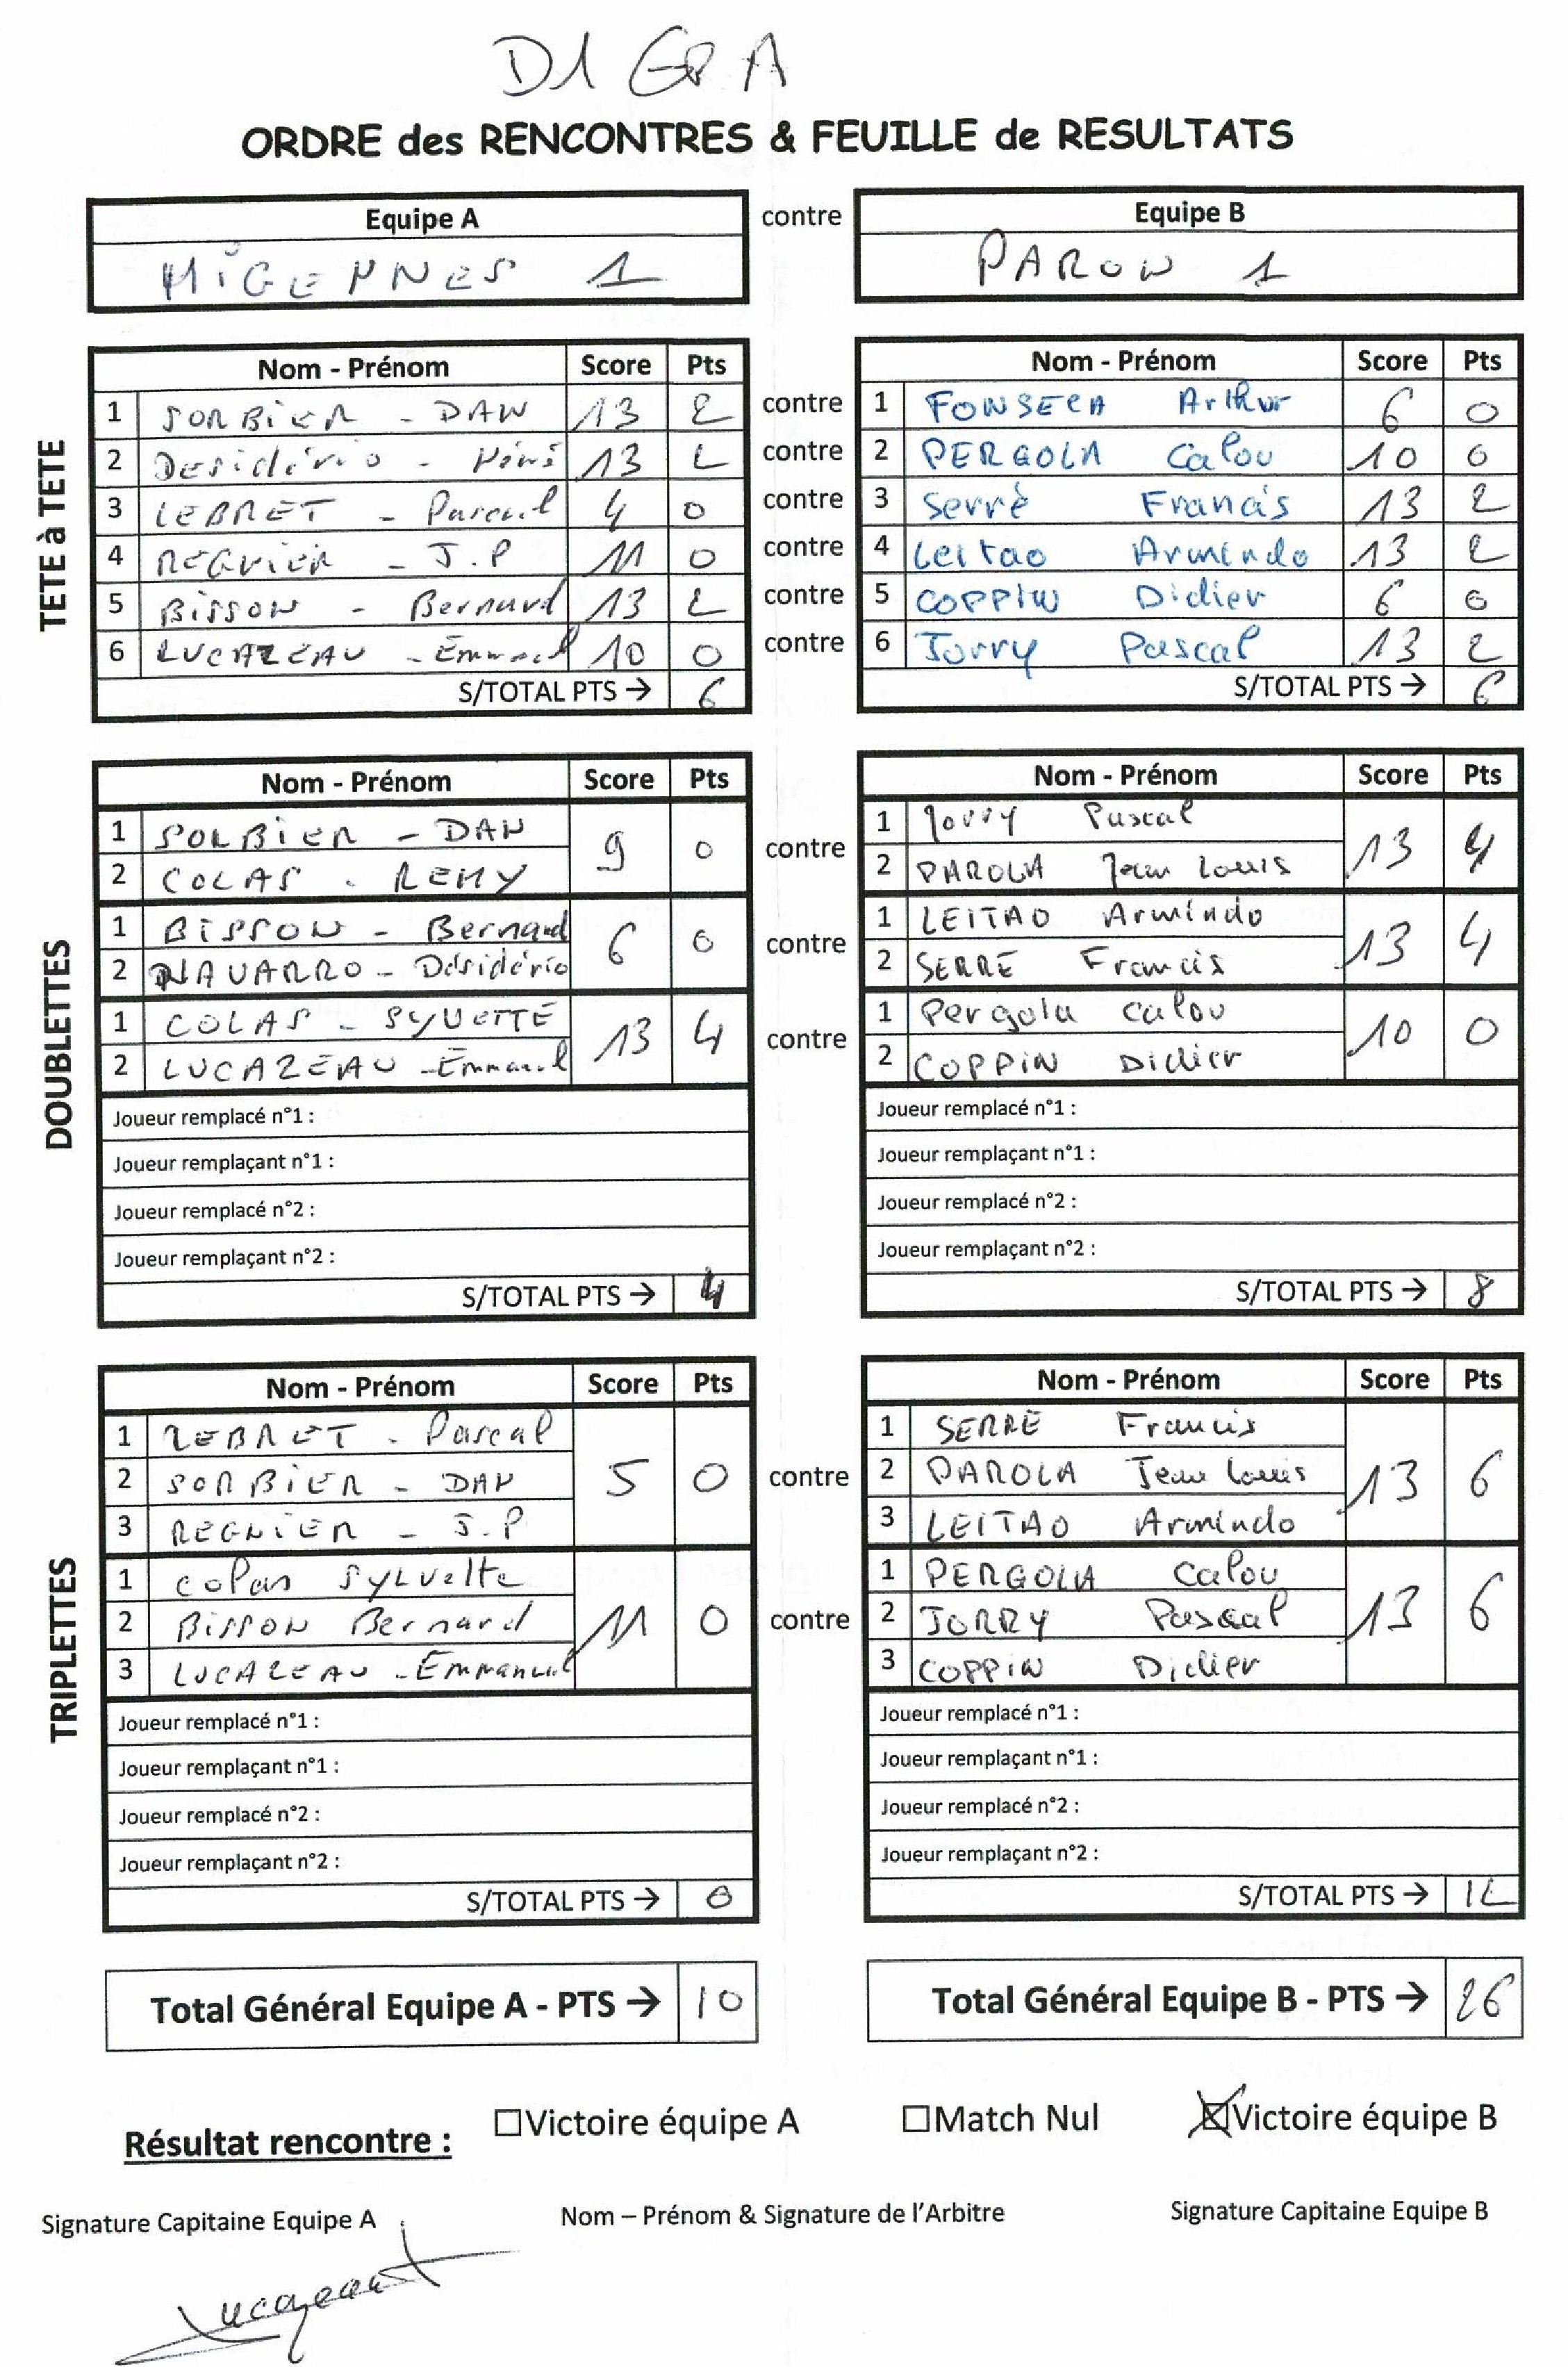 D1 GP A
ORDRE des RENCONTRES & FEUILLE de RESULTATS
Equipe A contre Equipe B
MiGENNES 1 PARON 1
TETE à TETE
Nom - Prénom Score Pts Nom - Prénom Score Pts
1 SORBiER - DAN 13 2 contre 1 FONSECA Arthur 6 0
2 Desidério - 13 2 contre 2 PERGOLA Calou 10 0
3 LEBRET - Pascal 4 0 contre 3 Serré Francis 13 2
4 REGNiER - J.P 11 0 contre 4 Leitao Armindo 13 2
5 BiSSON - Bernard 13 2 contre 5 COPPIN Didier 6 0
6 LUCAZEAU - Emmanuel 10 0 contre 6 Jorry Pascal 13 2
S/TOTAL PTS → 6 S/TOTAL PTS → 6
DOUBLETTES
Nom - Prénom Score Pts Nom - Prénom Score Pts
1 SORBiER - DAN 9 0 contre 1 Jorry Pascal 13 4
2 COLAS - REMY 2 PAROLA Jean Louis
1 BiSSON - Bernard 6 0 contre 1 LEITAO Armindo 13 4
2 NAVARRO - Désidério 2 SERRE Francis
1 COLAS - SYLVETTE 13 4 contre 1 Pergola Calou 10 0
2 LUCAZEAU - Emmanuel 2 COPPiN Didier
Joueur remplacé n°1 : Joueur remplacé n°1 :
Joueur remplaçant n°1 : Joueur remplaçant n°1 :
Joueur remplacé n°2 : Joueur remplacé n°2 :
Joueur remplaçant n°2 : Joueur remplaçant n°2 :
S/TOTAL PTS → 4 S/TOTAL PTS → 8
TRIPLETTES
Nom - Prénom Score Pts Nom - Prénom Score Pts
1 LEBRET - Pascal 5 0 contre 1 SERRÉ Francis 13 6
2 SORBiER - DAN 2 PAROLA Jean Louis
3 REGNiER - J.P 3 LEITAO Armindo
1 Colas SYLVette 11 0 contre 1 PERGOLA Calou 13 6
2 BiSSON Bernard 2 JORRY Pascal
3 LUCAZEAU - Emmanuel 3 COPPiN Didier
Joueur remplacé n°1 : Joueur remplacé n°1 :
Joueur remplaçant n°1 : Joueur remplaçant n°1 :
Joueur remplacé n°2 : Joueur remplacé n°2 :
Joueur remplaçant n°2 : Joueur remplaçant n°2 :
S/TOTAL PTS → 0 S/TOTAL PTS → 12
Total Général Equipe A - PTS → 10 Total Général Equipe B - PTS → 26
Résultat rencontre : Victoire équipe A Match Nul Victoire équipe B
Signature Capitaine Equipe A Nom – Prénom & Signature de l'Arbitre Signature Capitaine Equipe B
Lucazeau